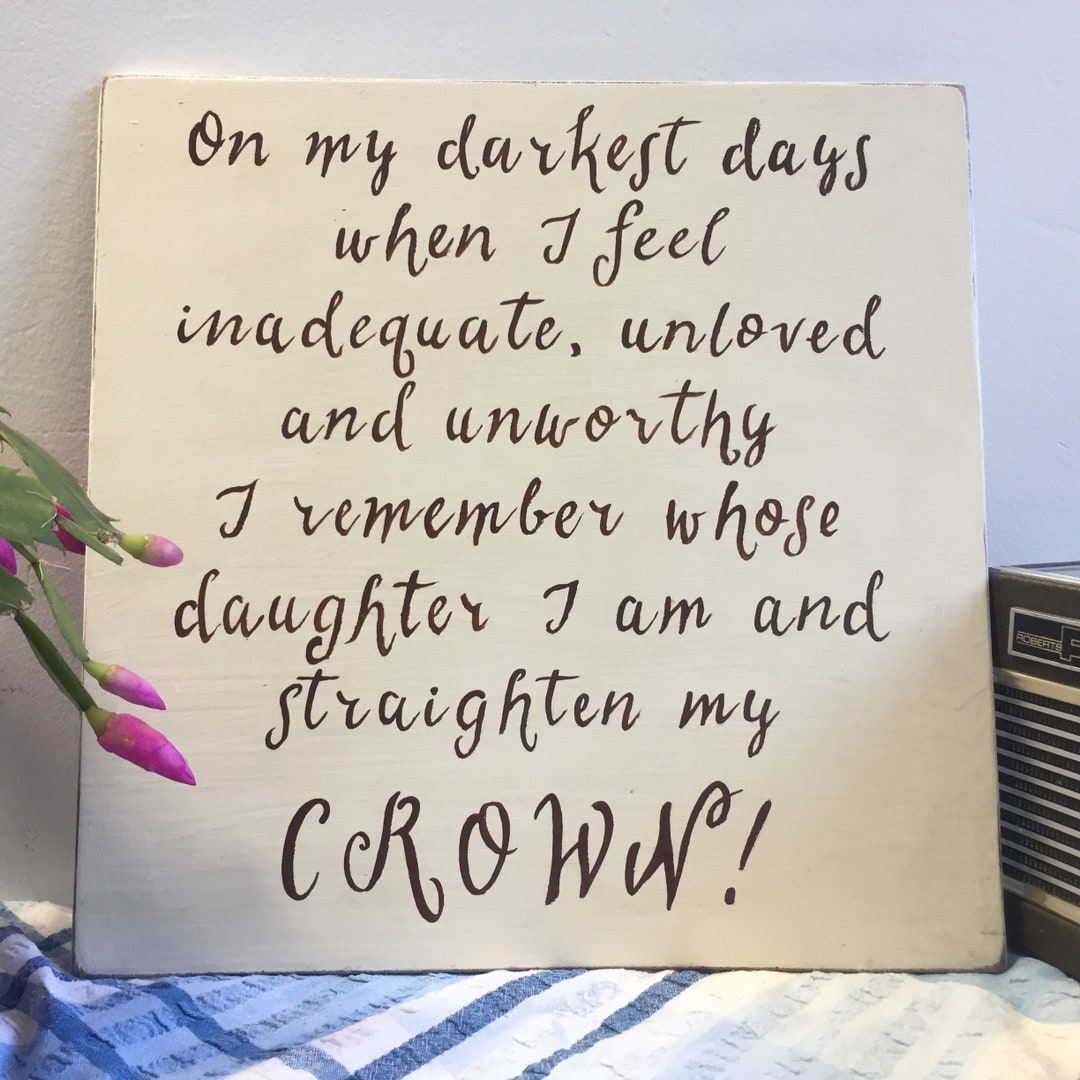 On my darkest days
when I feel
inadequate, unloved
and unworthy
I remember whose
daughter I am and
straighten my
CROWN!
ROBERTS